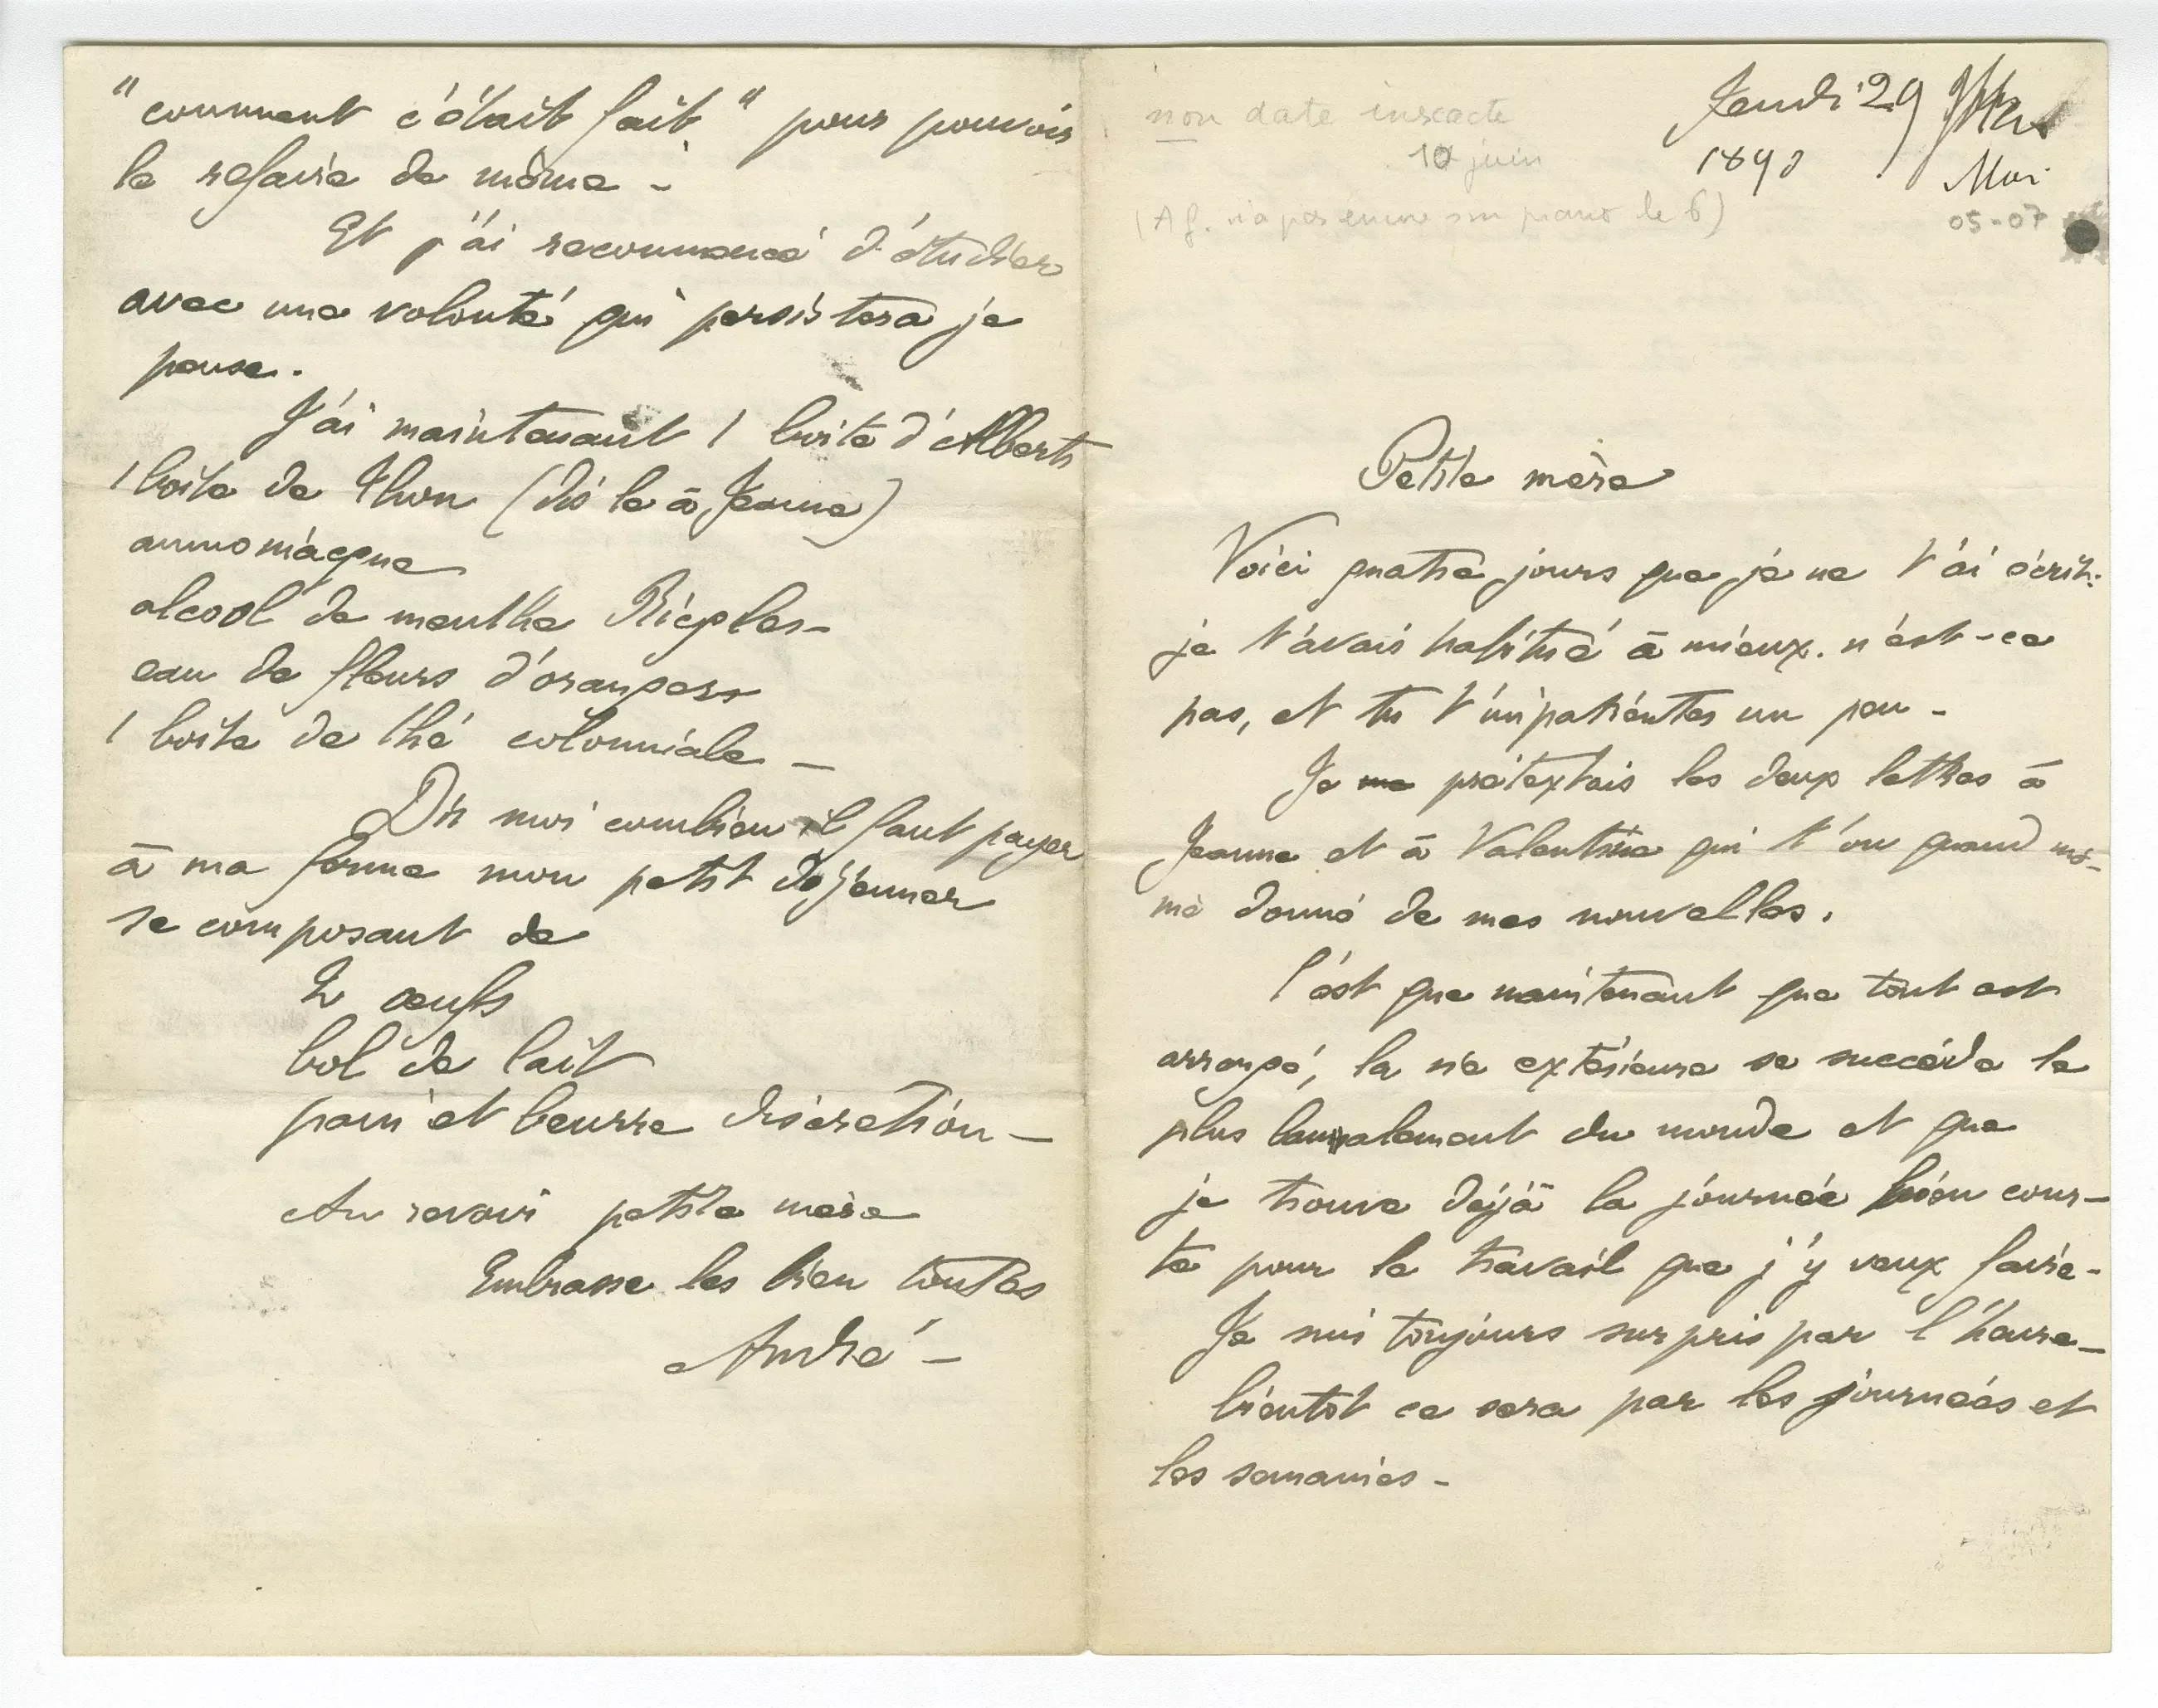 Jeudi 29
1890
Mai
05-07
non date inexacte
10 juin
(A G. n'a pas encore son piano le 6)
Petite mère
Voici quatre jours que je ne t'ai écrit:
je t'avais habitué à mieux. n'est-ce
pas, et tu t'impatientes un peu -
Je me prétextais les deux lettres à
Jeanne et à Valentine qui t'on quand mê-
me donné de mes nouvelles.
C'est que maintenant que tout est
arrangé, la vie extérieure se succède le
plus banalement du monde et que
je trouve déjà la journée bien cour-
te pour le travail que j'y veux faire -
Je suis toujours surpris par l'heure -
bientôt ce sera par les journées et
les semaines -
"comment c'était fait" pour pouvoir
le refaire de même -
Et j'ai recommencé d'étudier
avec une volonté qui persistera je
pense.
J'ai maintenant 1 boite d'Alberts
1 boite de thon (dis le à Jeanne)
ammoniaque
alcool de menthe Ricqles -
eau de fleurs d'orangers
1 boite de thé colonniale -
Dis moi combien il faut payer
à ma ferme mon petit déjeuner
se composant de
2 œufs
bol de lait
pain et beurre discrétion -
Au revoir petite mère
Embrasse les bien toutes
André -